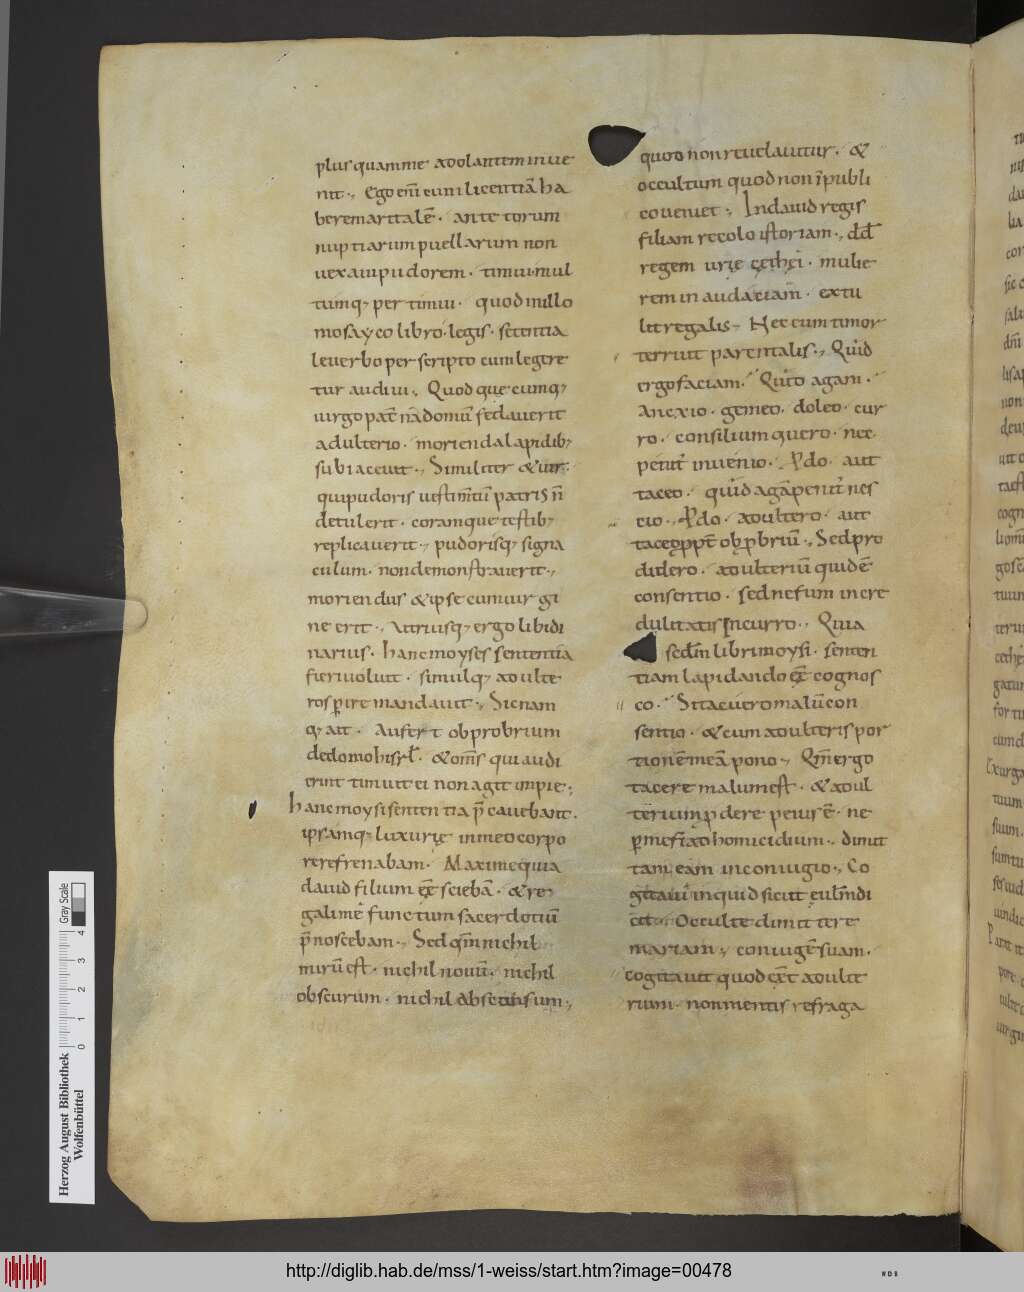 plus quam me adolantem inue
nit ·, Ego em̄ cum licentiā ha
beremaritalē · ante torum
nuptiarum puellarum non
uexaui pudorem · timui · mul
tumq; per timui · quod in illo
mosayco libro · legis · sententia
leuerbo per scripto cum legere
tur audiui ·, Quod quecumq;
uirgo pat̄ n̄a domū sedauerit
adulterio · morienda lapidib;
subiaceuit ·, Similiter & uir
qui pudoris uestim̄tū patris n̄
detulerit · coramque testib;
replicauerit ·, pudorisq; signa
culum · non demonstrauerit ·,
moriendus & ipse cum uir gi
ne erit ·, Utriusq; ergo libidi
narius · hanc moyses sententiā
fieri uoluit · simulq; adulte
ros perire mandauit ·, Sic nam
q; ait · Aufert obprobrium
de domo hisrl̄ · & om̄s qui audi
erint timuit ei non agit impie;
hanc moysi sententia p̄cauebant ·
ipsamq; luxurię in meo corpo
re refrenabam · Maxime quia
dauid filium eē sciebā · & re
galimē functum sacerdotiū
p̄noscebam ·, Sed qm̄ nichil
mirū est · nichil nouū · nichil
obscurum · nichil absconsum ·,
quod non reuelauitur · &
occultum quod non īpubli
co ueniet ·, In dauid regis
filiam recolo istoriam ·, dd̄
regem urię cęthęi · mulie
rem in audatiam̄ · extu
lit regalis, Hec cum timor
terruit parentalis ·, Quid
ergo faciam · Quito agam ·
Anexio · gemeo · doleo · cur
ro · consilium quero · nec
petit̄ inuenio · P̱do · aut
taceo · quid agā penit̄ nes
cio ·, P̱do · adultero · aut
taceo ppt̄ obpbriū ·, Sed pro
didero · adulteriū quidē
consentio · sed nefum incre
dulitatis incurro ·, Quia
sedm̄ libri moysi · senten
tiam lapidando eē cognos
co · Sitacuero malū con
sentio · & cum adulteris por
tionē meā pono, Qm̄ ergo
tacere malum est · & adul
terium p̱dere peius ē · ne
p̱mesti ad homicidium · dimit
tam eam in coniugio ·, Co
gitauit̄ inquid sicut eulm̄di
cit · Occulte dimittere
mariam ·, coniugē suam ·
cogitauit quod eēt adulte
rium · non mentis refraga
Herzog August Bibliothek
Wolfenbüttel
0 1 2 3 4
Gray Scale
http://diglib.hab.de/mss/1-weiss/start.htm?image=00478